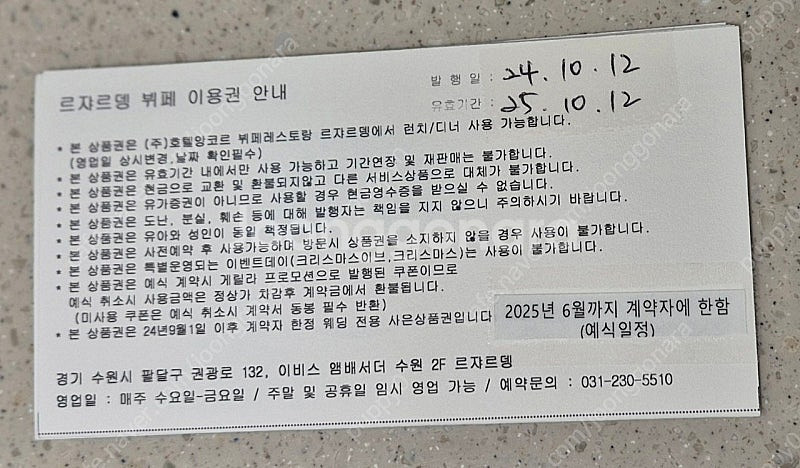 르쟈르뎅 뷔페 이용권 안내
발 행 일 : 24. 10. 12
유효기간 : 25. 10. 12
* 본 상품권은 (주)호텔앙코르 뷔페레스토랑 르쟈르뎅에서 런치/디너 사용 가능합니다.
(영업일 상시변경,날짜 확인필수)
* 본 상품권은 유효기간 내에서만 사용 가능하고 기간연장 및 재판매는 불가합니다.
* 본 상품권은 현금으로 교환 및 환불되지않고 다른 서비스상품으로 대체가 불가합니다.
* 본 상품권은 유가증권이 아니므로 사용할 경우 현금영수증을 받으실 수 없습니다.
* 본 상품권은 도난, 분실, 훼손 등에 대해 발행자는 책임을 지지 않으니 주의하시기 바랍니다.
* 본 상품권은 유아와 성인이 동일 책정됩니다.
* 본 상품권은 사전예약 후 사용가능하며 방문시 상품권을 소지하지 않을 경우 사용이 불가합니다.
* 본 상품권은 특별운영되는 이벤트데이(크리스마스이브,크리스마스)는 사용이 불가합니다.
* 본 상품권은 예식 계약시 게릴라 프로모션으로 발행된 쿠폰이므로
예식 취소시 사용금액은 정상가 차감후 계약금에서 환불됩니다.
(미사용 쿠폰은 예식 취소시 계약서 동봉 필수 반환)
* 본 상품권은 24년9월1일 이후 계약자 한정 웨딩 전용 사은상품권입니다
2025년 6월까지 계약자에 한함
(예식일정)
경기 수원시 팔달구 권광로 132, 이비스 앰배서더 수원 2F 르쟈르뎅
영업일 : 매주 수요일-금요일 / 주말 및 공휴일 임시 영업 가능 / 예약문의 : 031-230-5510